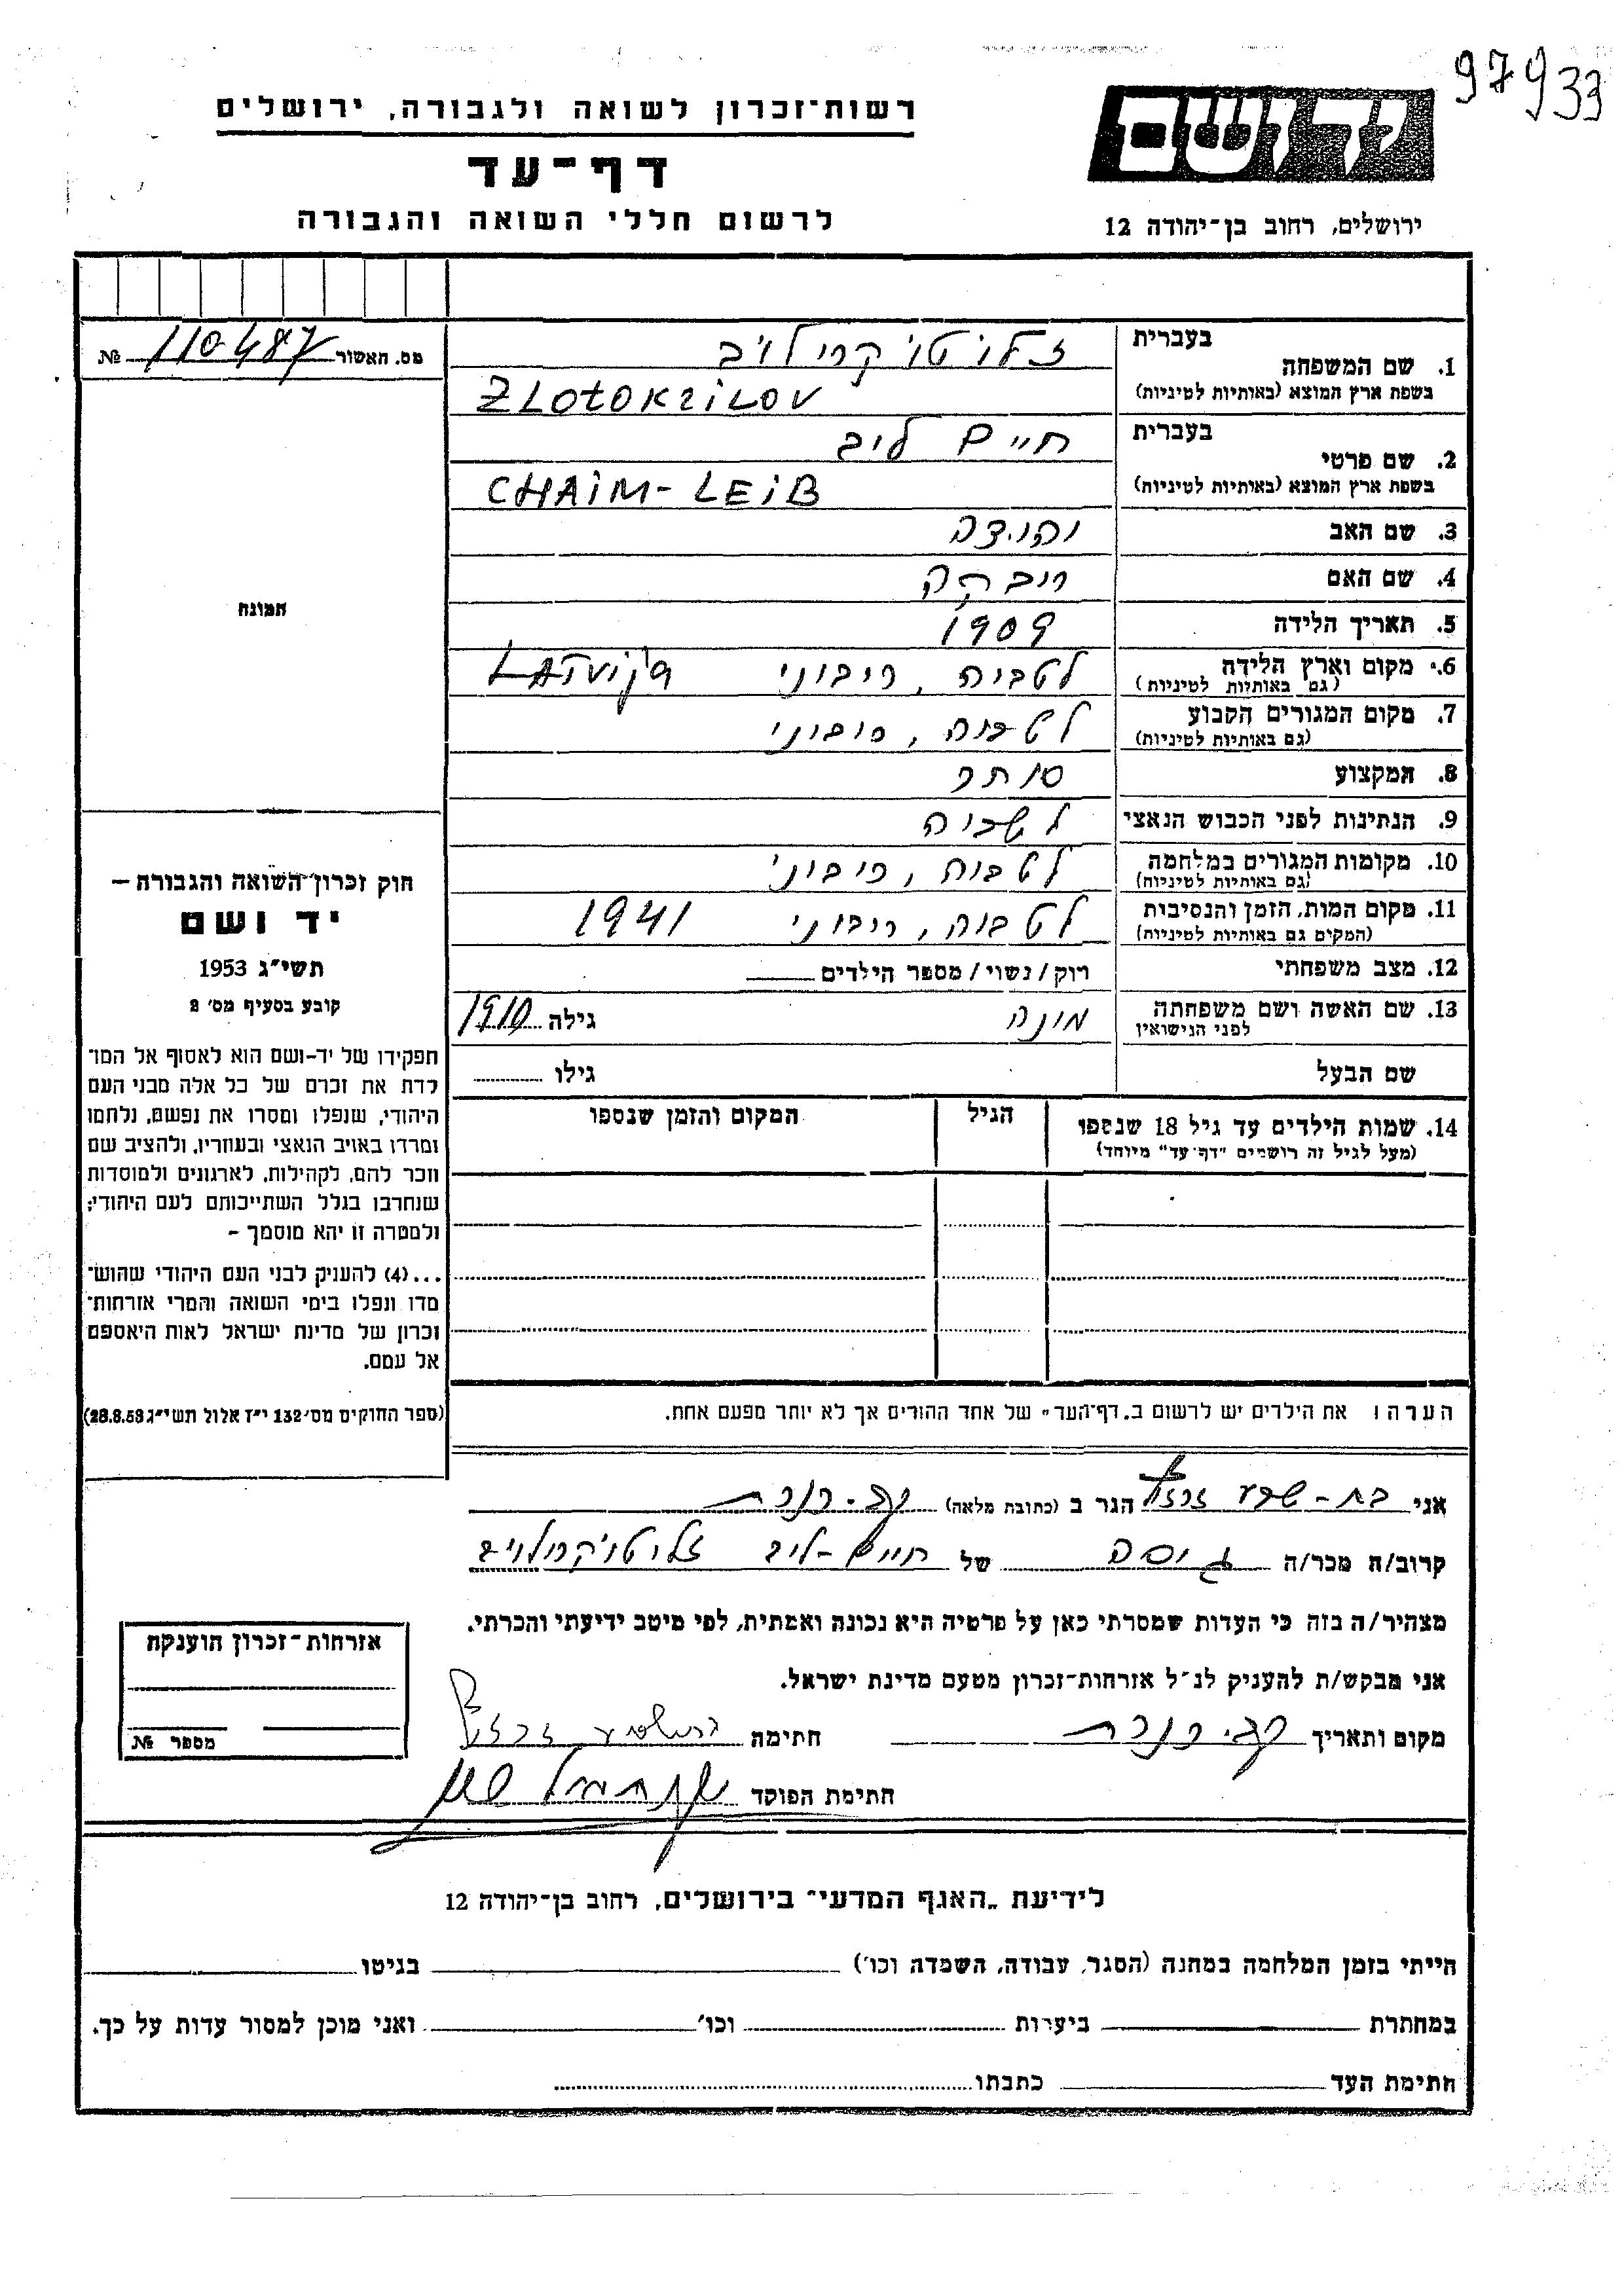 97933
רשות־זכרון לשואה ולגבורה, ירושלים
יד ושם
דף־עד
לרשום חללי השואה והגבורה
ירושלים, רחוב בן־יהודה 12
מס. האשור 110487 №
1. שם המשפחה
בעברית
זלוטוקרילוב
בשפת ארץ המוצא (באותיות לטיניות)
ZLOTOKRILOV
2. שם פרטי
בעברית
חיים ליב
בשפת ארץ המוצא (באותיות לטיניות)
CHAIM-LEIB
3. שם האב יהודה
4. שם האם רבקה
5. תאריך הלידה 1909
6. מקום וארץ הלידה לטביה, ריבוני LATVIJA
(גם באותיות לטיניות)
7. מקום המגורים הקבוע לטביה, ריבוני
(גם באותיות לטיניות)
8. המקצוע סוחר
9. הנתינות לפני הכבוש הנאצי לטביה
10. מקומות המגורים במלחמה לטביה, ריבוני
(גם באותיות לטיניות)
11. מקום המות, הזמן והנסיבות לטביה, ריבוני 1941
(המקום גם באותיות לטיניות)
12. מצב משפחתי רוק/נשוי/מספר הילדים
13. שם האשה ושם משפחתה מינה גילה 1910
לפני הנישואין
שם הבעל גילו
14. שמות הילדים עד גיל 18 שנספו הגיל המקום והזמן שנספו
(מעל לגיל זה רושמים "דף־עד" מיוחד)
תמונה
חוק זכרון השואה והגבורה —
יד ושם
תשי״ג 1953
קובע בסעיף מס׳ 2
תפקידו של יד-ושם הוא לאסוף אל המו־
לדת את זכרם של כל אלה מבני העם
היהודי, שנפלו ומסרו את נפשם, נלחמו
ומרדו באויב הנאצי ובעוזריו, ולהציב שם
וזכר להם, לקהילות, לארגונים ולמוסדות
שנחרבו בגלל השתייכותם לעם היהודי;
ולמטרה זו יהא מוסמך –
...(4) להעניק לבני העם היהודי שהוש־
מדו ונפלו בימי השואה והמרי אזרחות־
זכרון של מדינת ישראל לאות היאספם
אל עמם.
(ספר החוקים מס׳ 132 י״ז אלול תשי״ג 28.8.53)
הערה: את הילדים יש לרשום ב„דף־העד״ של אחד ההורים אך לא יותר מפעם אחת.
אני בת-שבע הגר ב (כתובת מלאה)
קרוב/ה מכר/ה גיסה של חיים-ליב זלוטוקרילוב
מצהיר/ה בזה כי העדות שמסרתי כאן על פרטיה היא נכונה ואמתית, לפי מיטב ידיעתי והכרתי.
אני מבקש/ת להעניק לנ״ל אזרחות־זכרון מטעם מדינת ישראל.
מקום ותאריך חתימה
חתימת הפוקד
אזרחות־זכרון הוענקה
מספר №
לידיעת „האגף המדעי״ בירושלים, רחוב בן־יהודה 12
הייתי בזמן המלחמה במחנה (הסגר, עבודה, השמדה וכו׳) בגיטו
במחתרת ביערות וכו׳ ואני מוכן למסור עדות על כך.
חתימת העד כתבתו